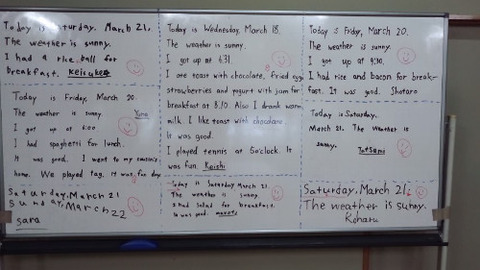 Today is Saturday. March 21,
The weather is sunny.
I had a rice ball for
breakfast. Keisuke
Today is Friday, March 20.
The weather is sunny Yuna
I got up at 6:00
I had spaghetti for lunch.
It was good. I went to my cousin's
home. We played tag. It was fun day
Saturday, March 21
Sunday, March 22
Sara
Today is Wednesday, March 18.
The weather is sunny.
I got up at 6:31.
I ate toast with chocolate, fried eggs
strawberries and yogurt with jam for
breakfast at 8:10. Also I drank warm
milk. I like toast with chocolate.
It was good.
I played tennis at 5o'clock. It
was fun. Koichi
Today is Saturday March 21.
The weather is sunny
I had salad for breakfast.
It was good.
Today is Friday, March 20.
The weather is sunny.
I got up at 9:30.
I had rice and bacon for break-
fast. It was good. Shotaro
Today is Saturday.
March 21. The weather is
sunny. Tatsumi
Saturday, March 21.
The weather is sunny.
Koharu